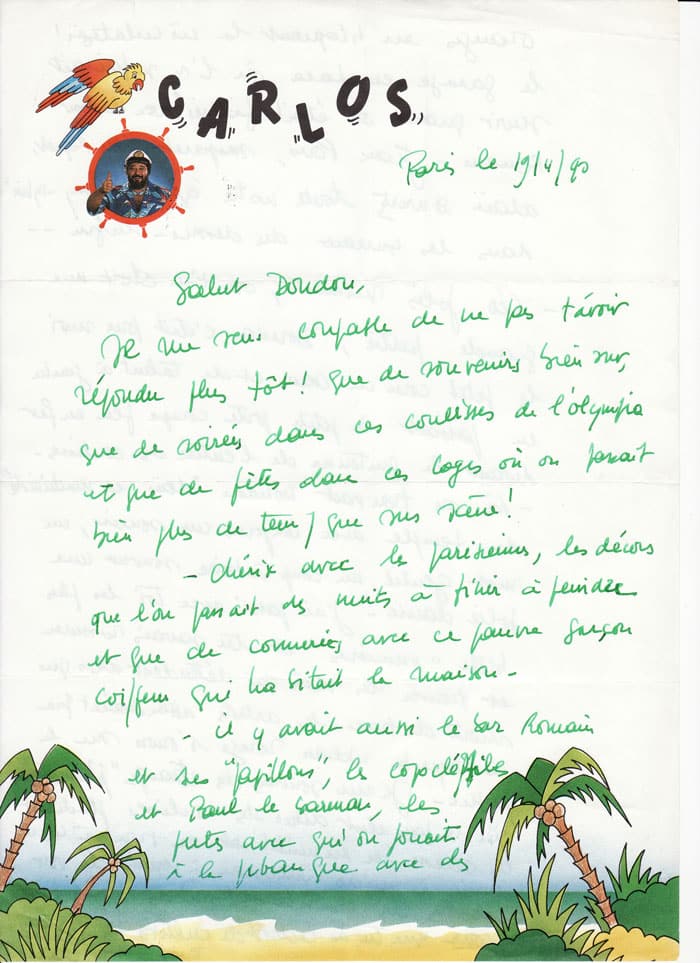 CARLOS
Paris le 19/4/90
Salut Doudou,
Je me sens coupable de ne pas t'avoir
répondu plus tôt! que de souvenirs bien sur,
que de soirées dans ces coulisses de l'olympia
et que de fêtes dans ces loges où on passait
bien plus de temps que sur scène!
- chérix avec les parisiennes, les décors
que l'on passait des nuits à finir à peindre
et que de conneries avec ce pauvre garçon
coiffeur qui habitait la maison -
- il y avait aussi le bar Romain
et ses "papillons", les
et Paul le barman, les
putes avec qui on jouait
à la pétanque avec des